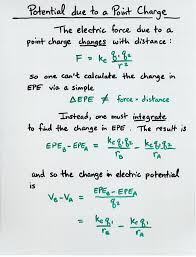 Potential due to a Point Charge
The electric force due to a
point charge changes with distance:
F = kc q1 q2 / r²
so one can't calculate the change in
EPE via a simple
ΔEPE ≠ force · distance
Instead, one must integrate
to find the change in EPE. The result is
EPE_B - EPE_A = kc q1 q2 / r_B - kc q1 q2 / r_A
and so the change in electric potential
is
V_B - V_A = (EPE_B - EPE_A) / q2
= kc q1 / r_B - kc q1 / r_A